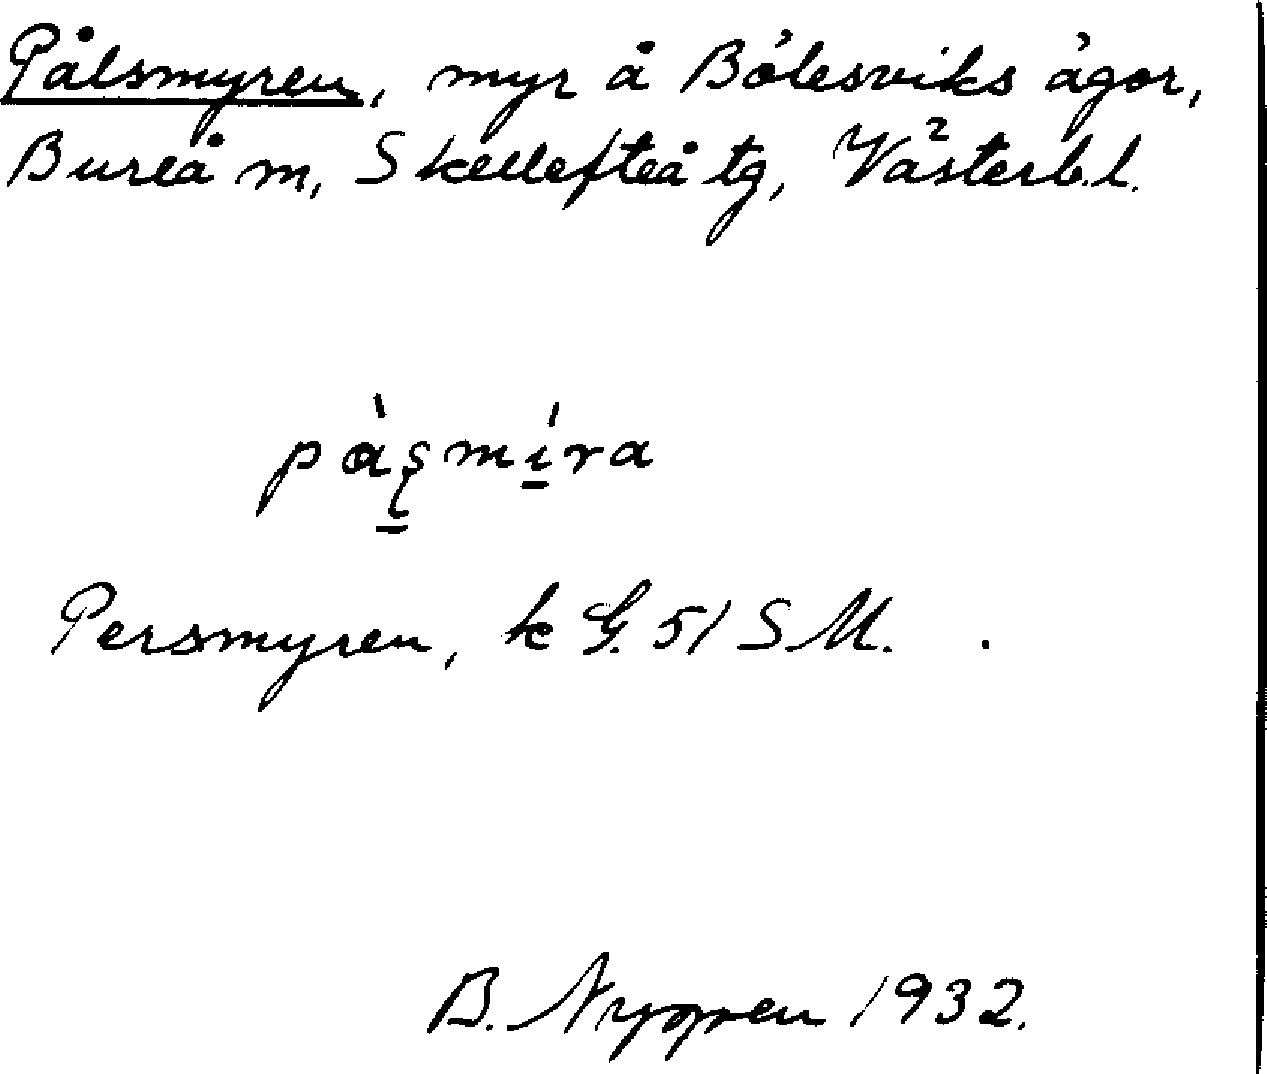 Pålsmyren, myr å Bölesviks ägor,
Bureå m, Skellefteå tg, Västerb.l.
pàʂmíra
Persmyren, k G. 51 S M.
B. Nygren 1932.